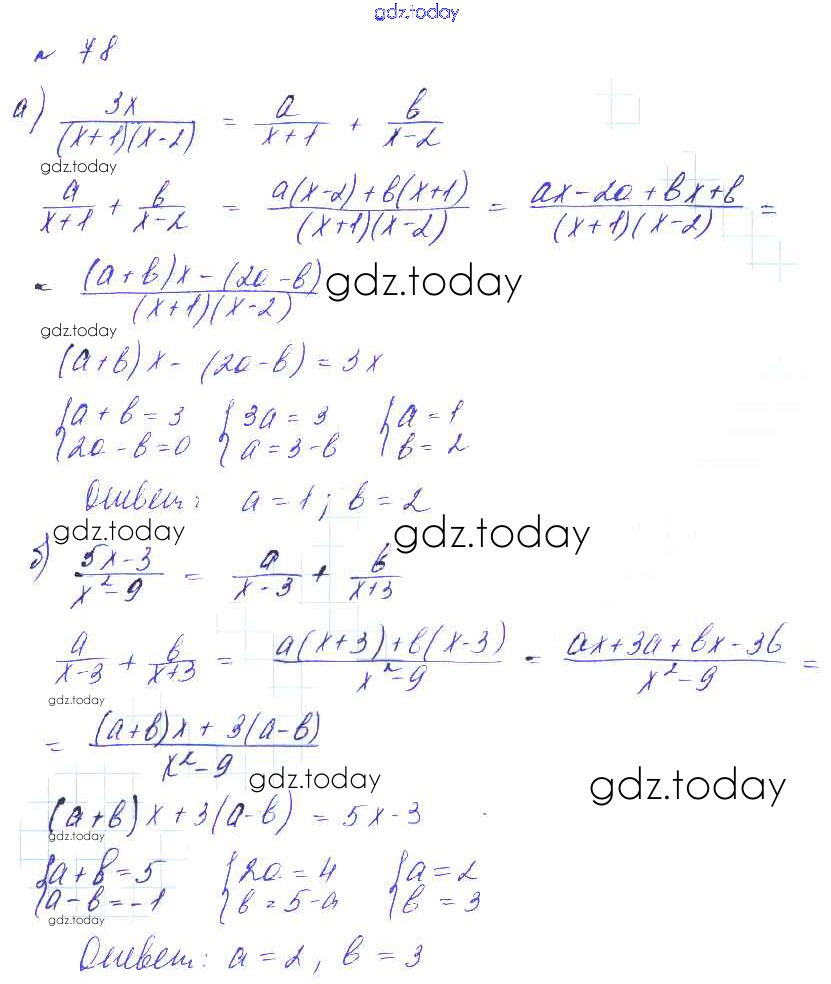 gdz.today
№ 78
а) 3x/((x+1)(x-2)) = a/(x+1) + b/(x-2)
gdz.today
a/(x+1) + b/(x-2) = (a(x-2)+b(x+1))/((x+1)(x-2)) = (ax-2a+bx+b)/((x+1)(x-2)) =
= ((a+b)x-(2a-b))/((x+1)(x-2)) gdz.today
gdz.today
(a+b)x-(2a-b)=3x
{a+b=3 {3a=3 {a=1
{2a-b=0 {a=3-b {b=2
Ответ: a=1; b=2
gdz.today gdz.today
б) (5x-3)/(x²-9) = a/(x-3) + b/(x+3)
a/(x-3) + b/(x+3) = (a(x+3)+b(x-3))/(x²-9) = (ax+3a+bx-3b)/(x²-9) =
gdz.today gdz.today
= ((a+b)x+3(a-b))/(x²-9)
gdz.today gdz.today
(a+b)x+3(a-b)=5x-3
gdz.today
{a+b=5 {2a=4 {a=2
{a-b=-1 {b=5-a {b=3
gdz.today
Ответ: a=2, b=3